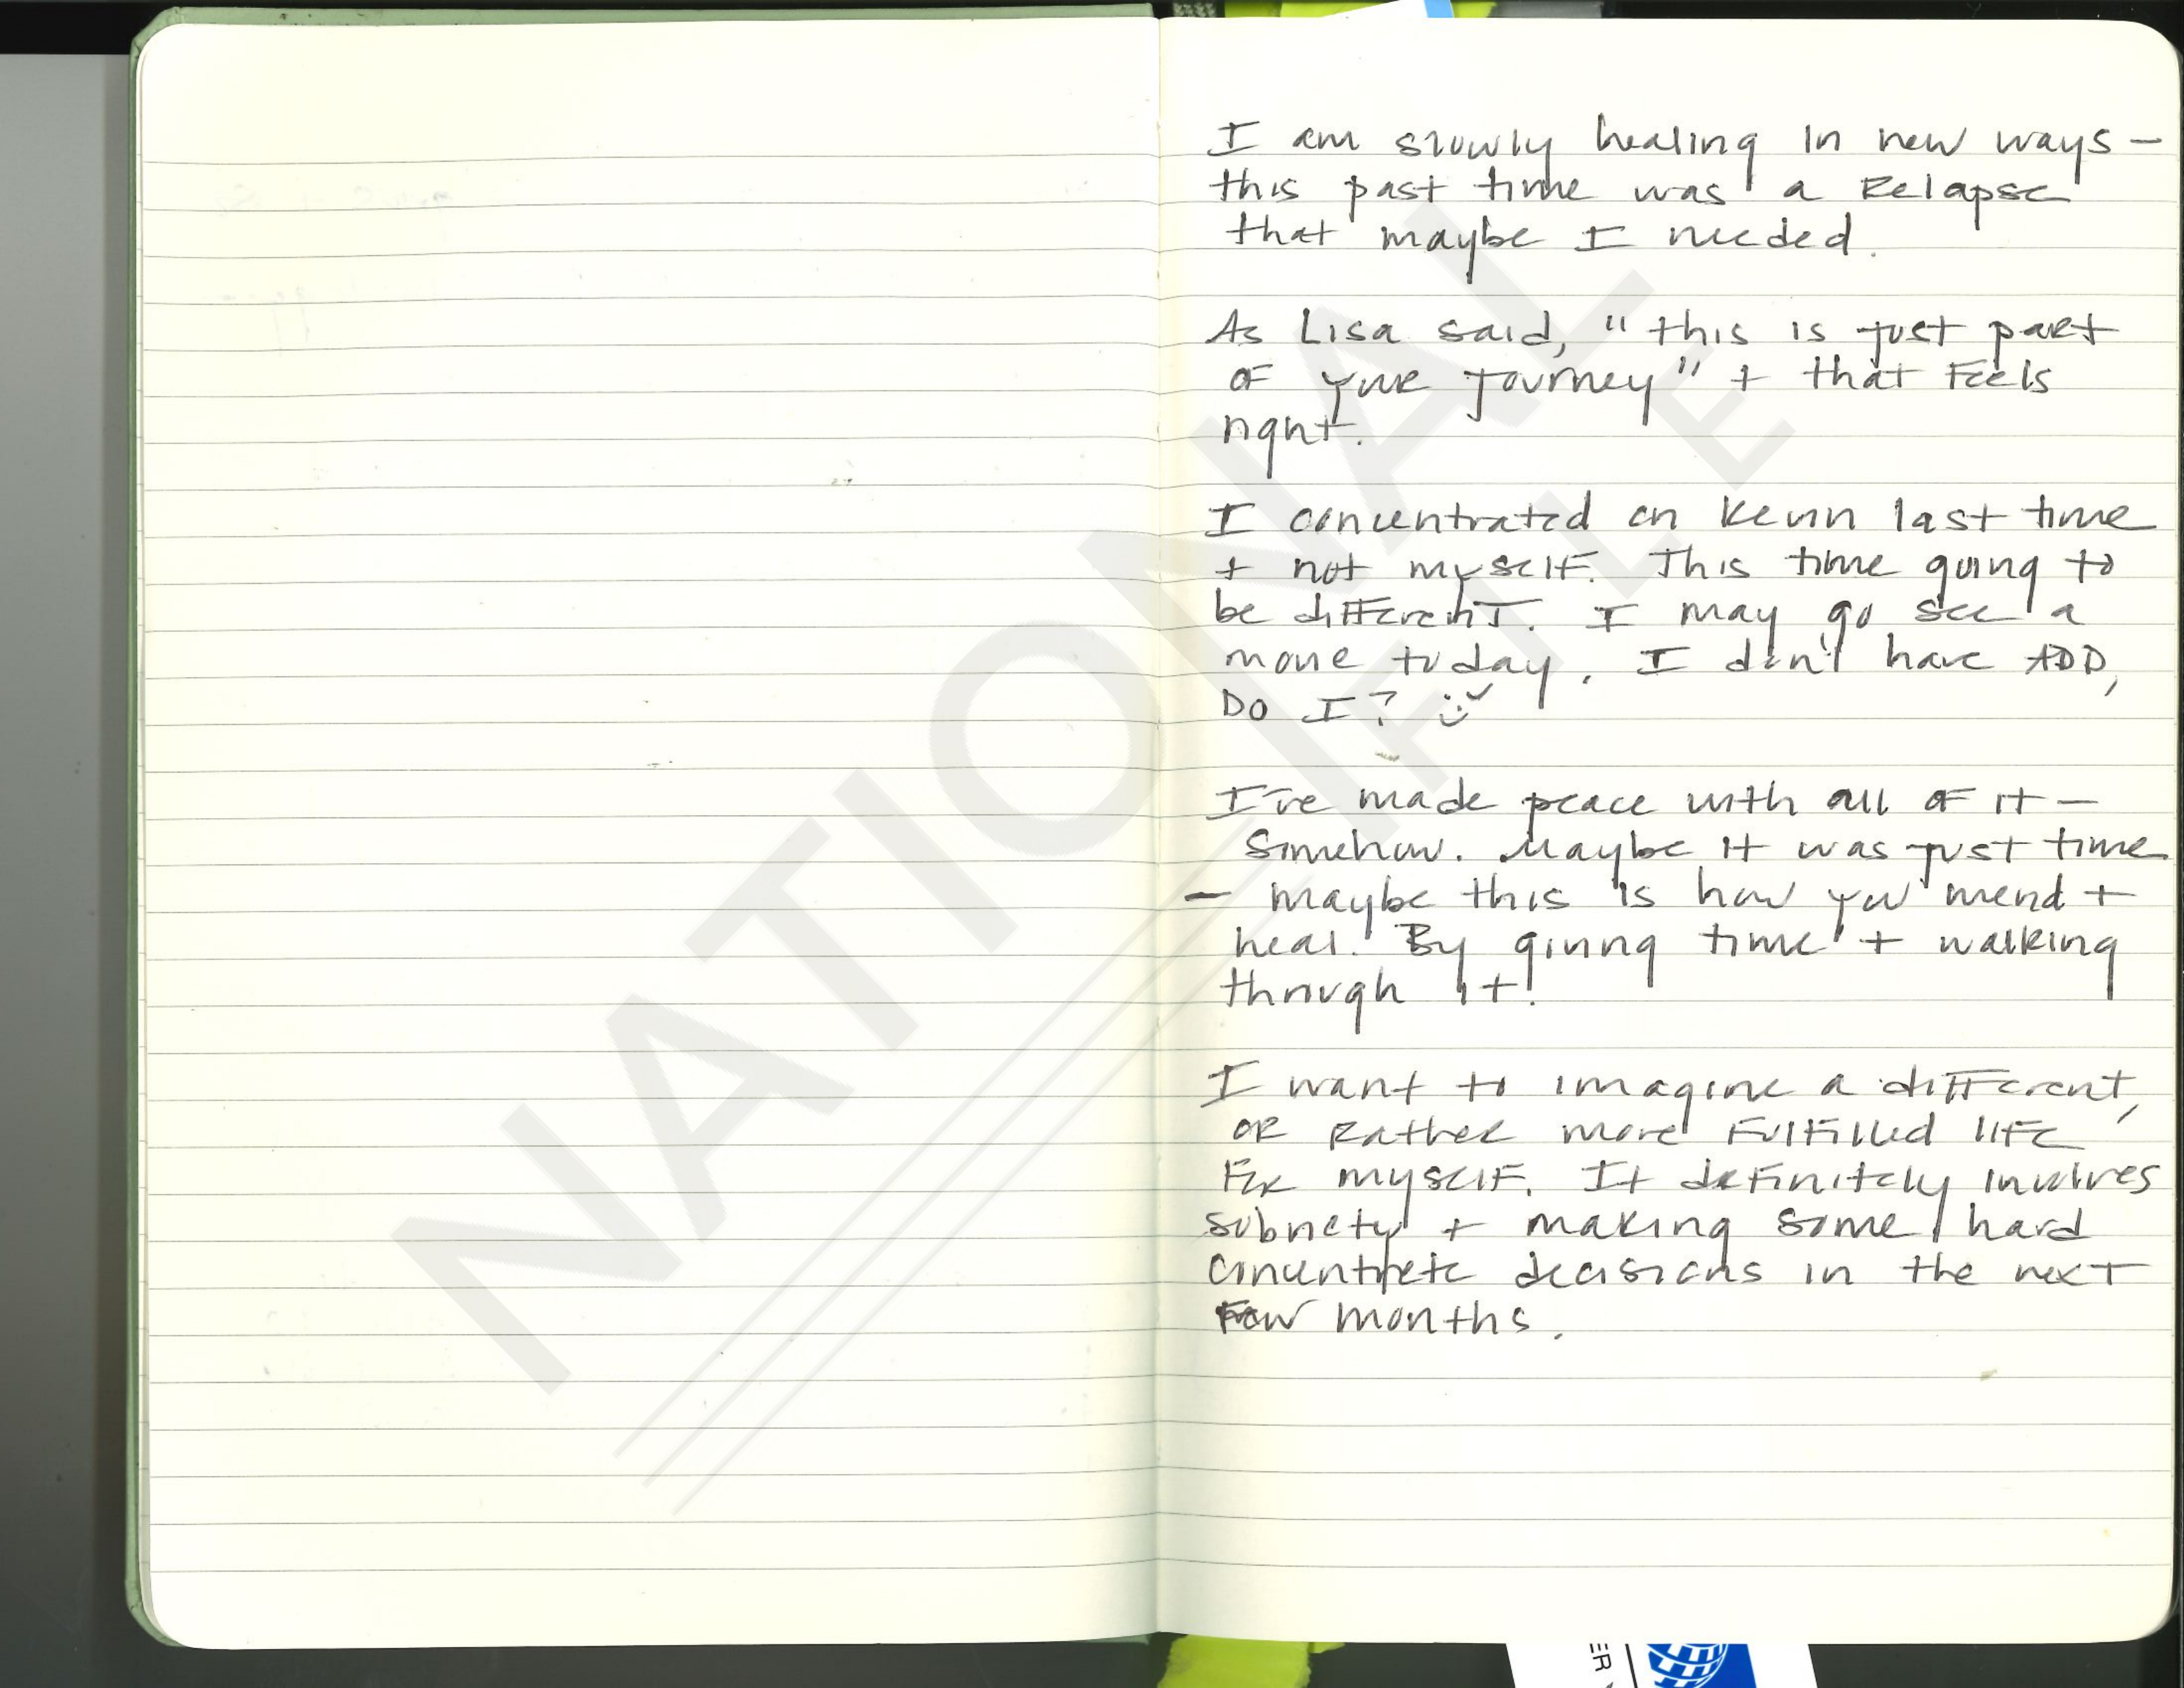 I am slowly healing in new ways -
this past time was a Relapse
that maybe I needed.
As Lisa said, "this is just part
of your journey" + that feels
right.
I concentrated on Kevin last time
+ not myself. This time going to
be different. I may go see a
movie today. I don't have ADD,
DO I?
I've made peace with all of it -
Somehow. Maybe it was just time
- maybe this is how you mend +
heal. By giving time + walking
through it!
I want to imagine a different,
or Rather more fulfilled life
for myself. It definitely involves
sobriety + making some hard
decisions in the next
few months.
NATIONAL
FILE
ER